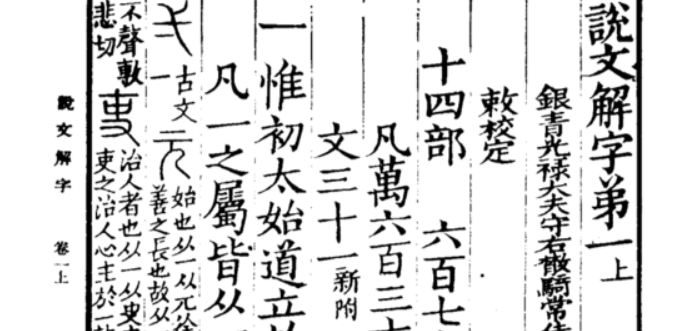 說文解字弟一上
銀青光祿大夫守右散騎常
敕校定
十四部 六百七
凡萬六百三
文三十一新附
一 惟初太始道立
凡一之屬皆从
一 古文 元 始也从一从兀
善之長也故从
不聲敷
悲切
吏 治人者也从一从史
吏之治人心主於一
說文解字 卷一上